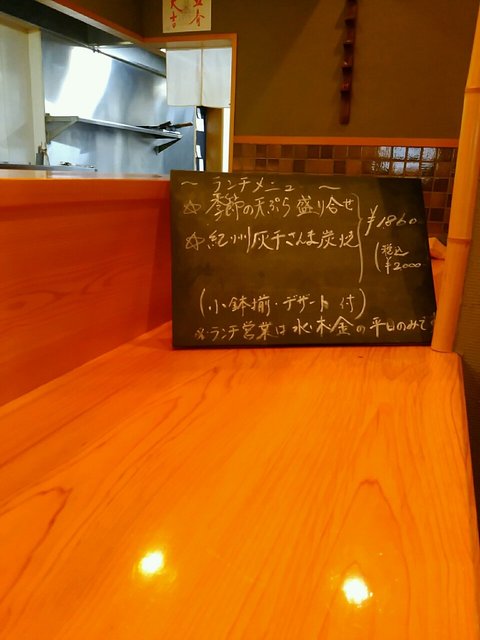 ～ ランチメニュー ～
☆ 季節の天ぷら盛り合せ
☆ 紀州灰干さんま炭焼
¥1860
(税込
¥2000
(小鉢揃・デザート付)
※ランチ営業は水・木・金の平日のみで